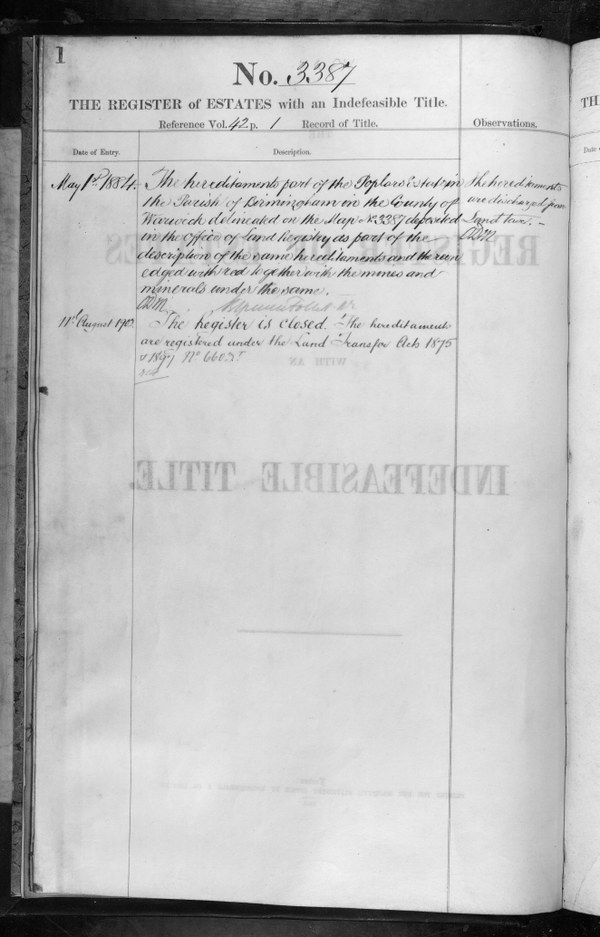 1
No. 3387
THE REGISTER of ESTATES with an Indefeasible Title.
Reference Vol. 42 p. 1 Record of Title.
Observations.
Date of Entry.
Description.
May 1st 1884.
The hereditaments part of the Poplars Estate in
the Parish of Birmingham in the County of
Warwick delineated on the Map No 3387 deposited
in the Office of Land Registry as part of the
description of the same hereditaments and thereon
edged with red together with the mines and
minerals under the same.
The hereditaments
are discharged from
Land tax. -
11th August 1903.
The Register is closed. The hereditaments
are registered under the Land Transfer Acts 1875
& 1897 No
TH
Date